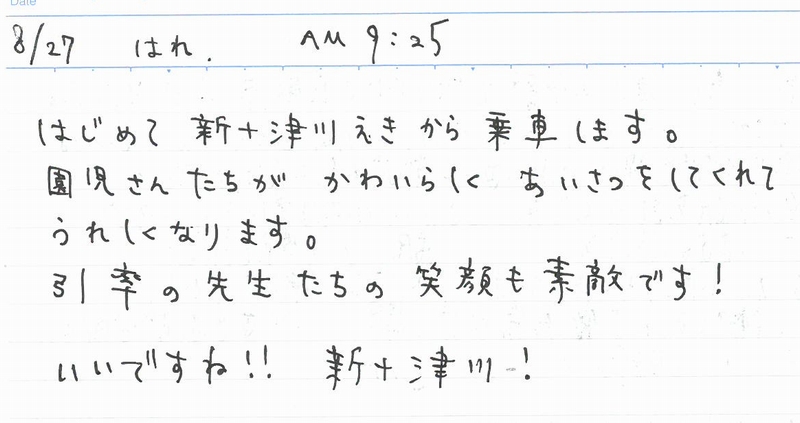 Date
8/27 はれ. AM 9:25
はじめて 新十津川えきから乗車します。
園児さんたちが かわいらしく あいさつをしてくれて
うれしくなります。
引率の先生たちの笑顔も素敵です!
いいですね!! 新十津川!